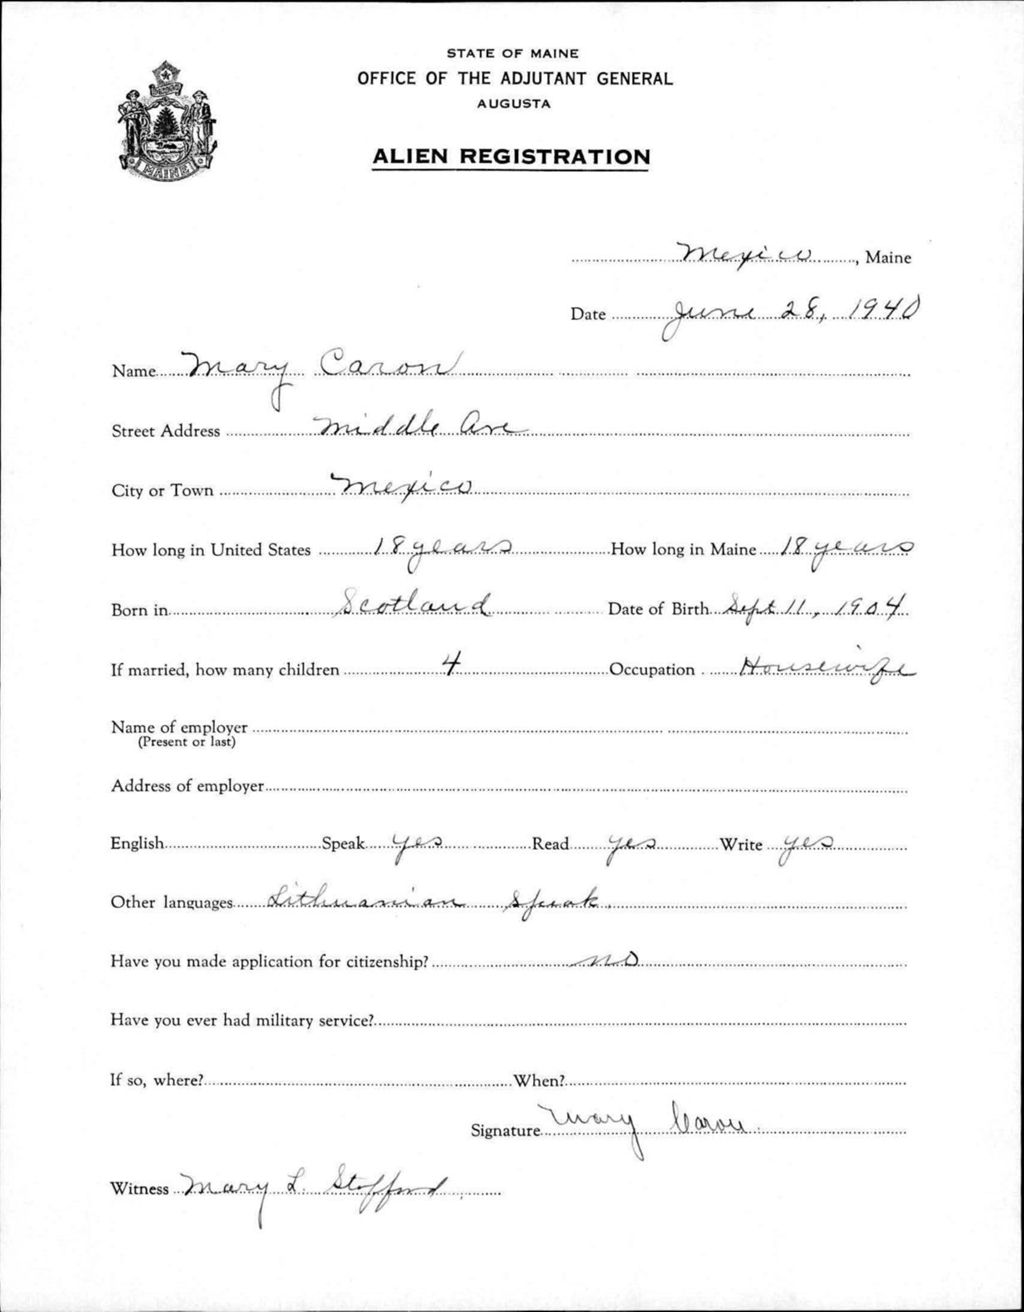 STATE OF MAINE
OFFICE OF THE ADJUTANT GENERAL
AUGUSTA
ALIEN REGISTRATION
MAINE
Mexico, Maine
Date June 28, 1940
Name Mary Caron
Street Address Middle Ave
City or Town Mexico
How long in United States 18 years How long in Maine 18 years
Born in Scotland Date of Birth Sept 11, 1904
If married, how many children 4 Occupation Housewife
Name of employer
(Present or last)
Address of employer
English Speak yes Read yes Write yes
Other languages Lithuanian Speak.
Have you made application for citizenship? no
Have you ever had military service?
If so, where? When?
Signature Mary Caron
Witness Mary L.